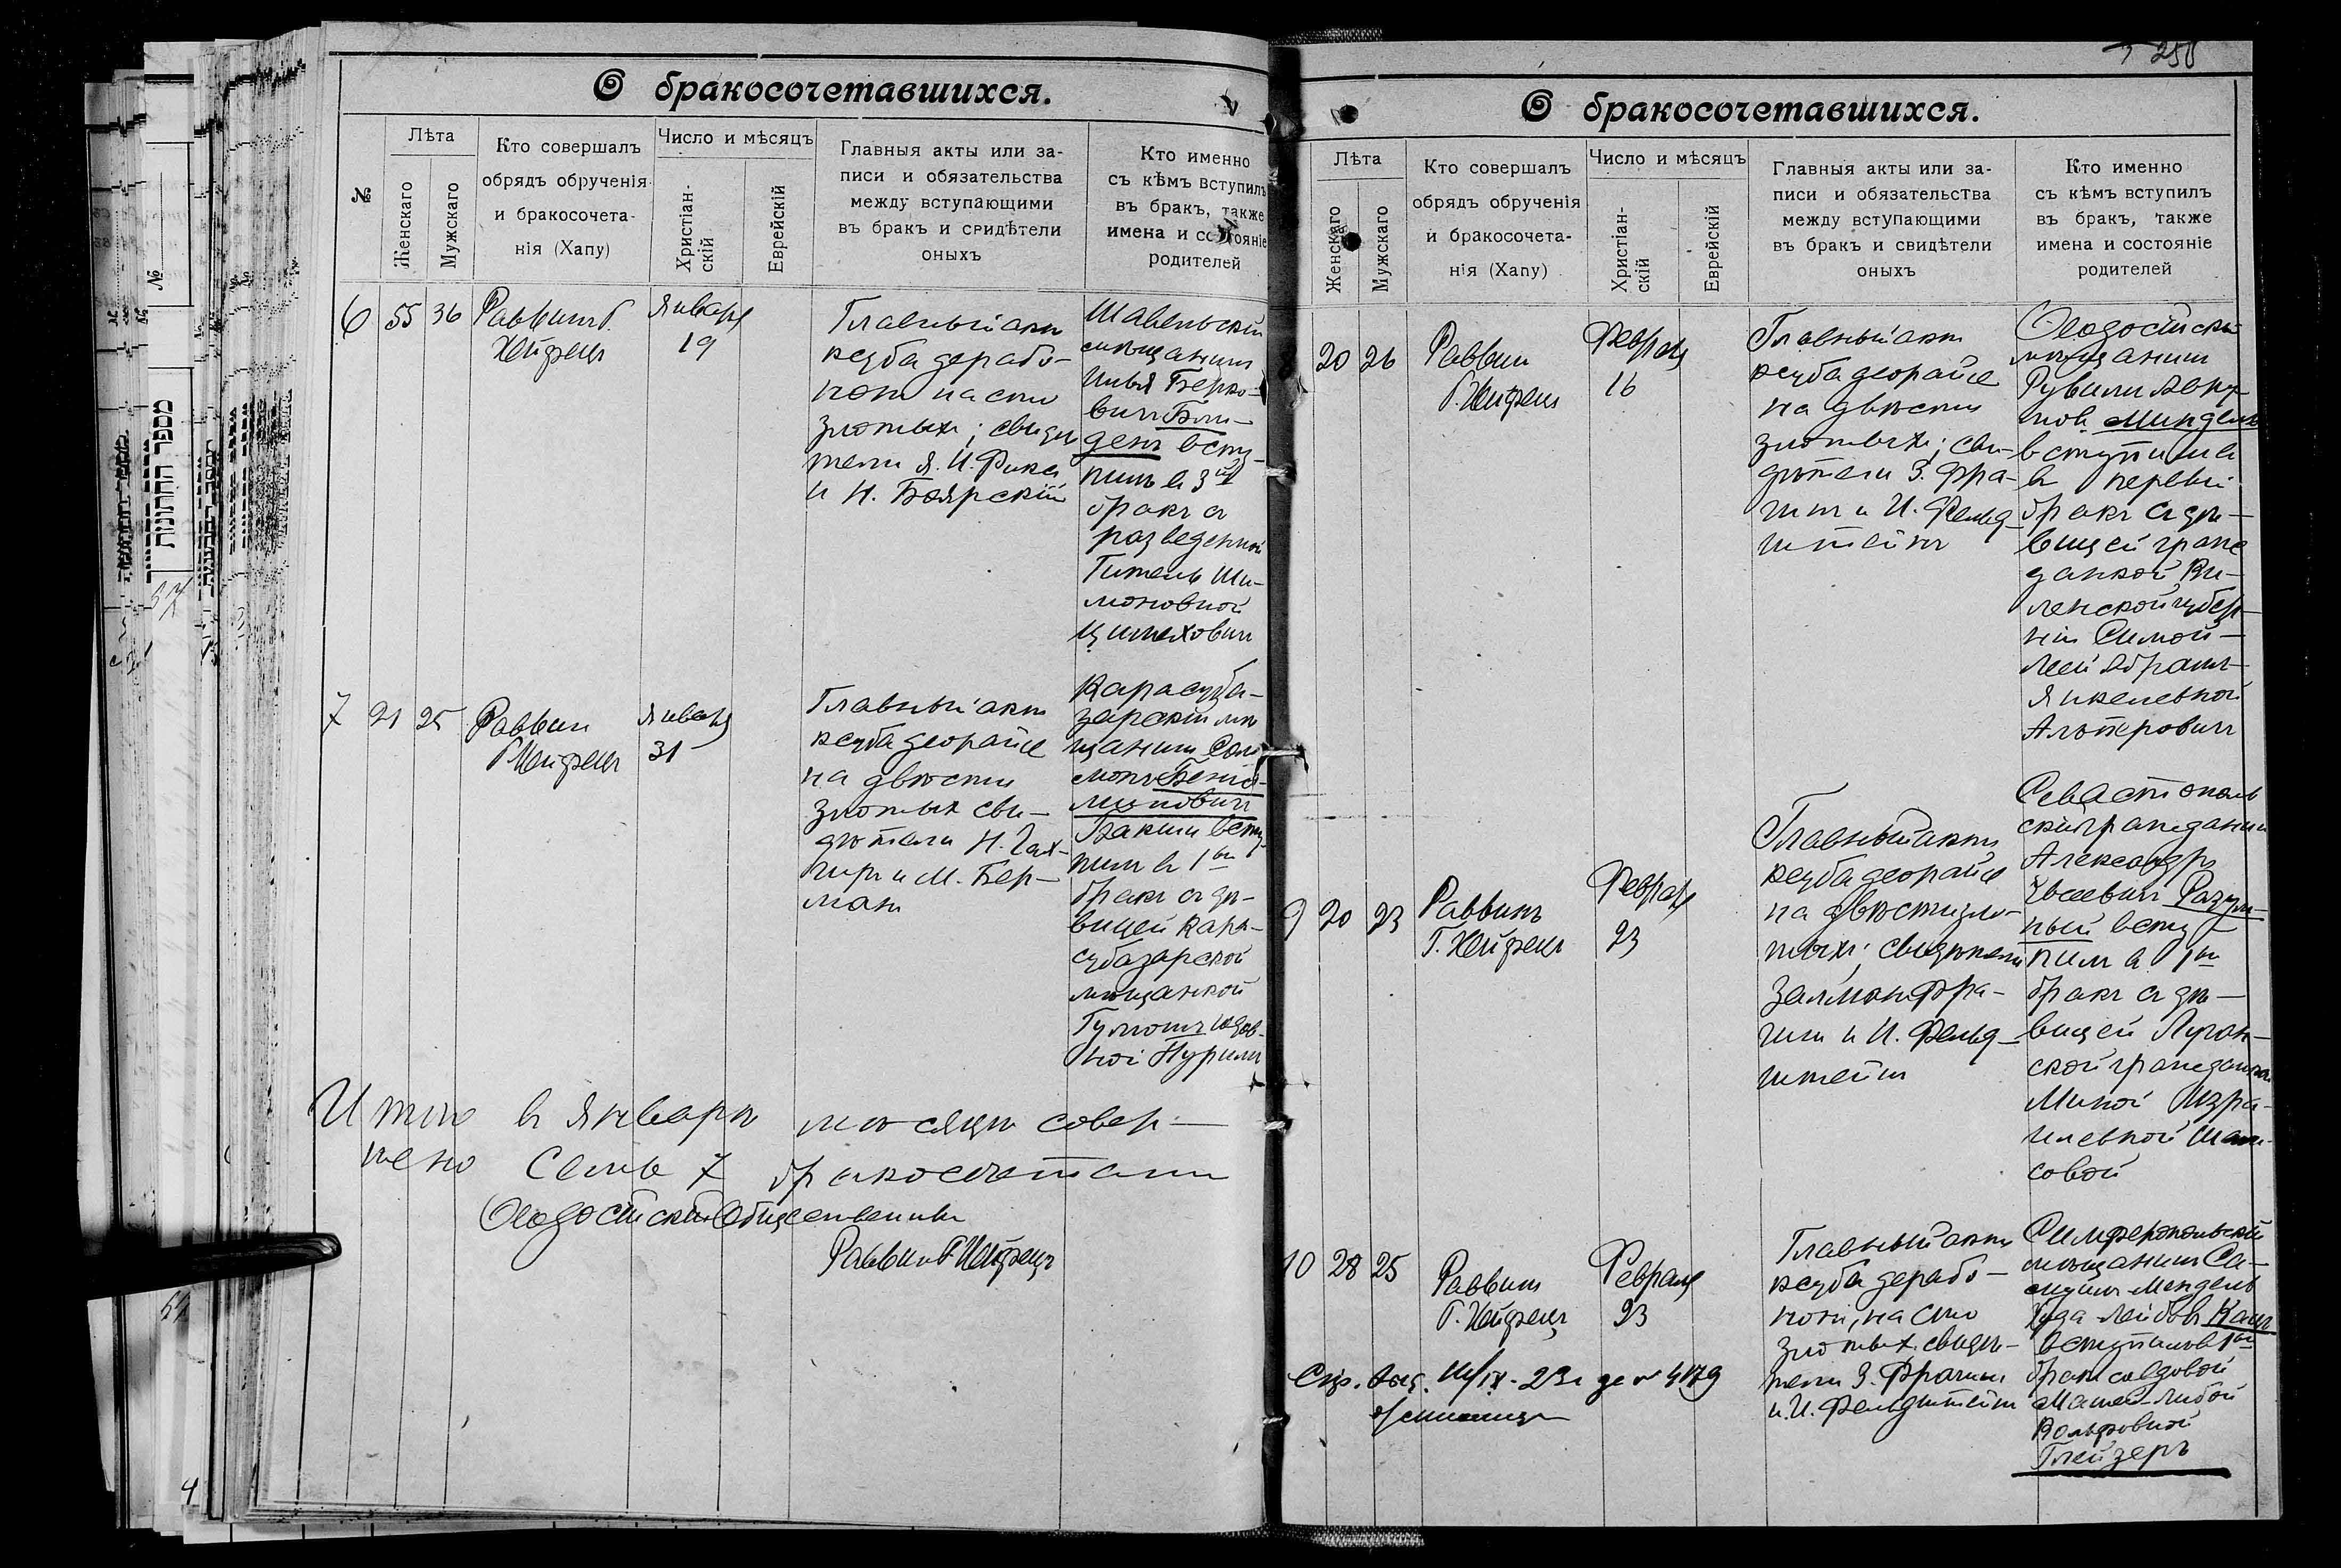 О бракосочетавшихся.
№
Лѣта
Женскаго
Мужскаго
Кто совершалъ
обрядъ обрученія
и бракосочета-
нія (Хапу)
Число и мѣсяцъ
Христіан-
скій
Еврейскій
Главныя акты или за-
писи и обязательства
между вступающими
въ бракъ и свидѣтели
оныхъ
Кто именно
съ кѣмъ вступилъ
въ бракъ, также
имена и состояніе
родителей
6
55
36
Раввинъ Г.
Хейфецъ
Января
19
Главный актъ
ксуба дерабо-
нон на сто
злотыхъ; свидѣ
тели Я. И. Фукс
и Н. Боярскій
Шавельскій
мѣщанинъ
Илья Берко-
вичъ Блин-
денъ всту-
пилъ въ 3ій
бракъ съ
разведенной
Гитель Ши-
моновной
Цимехович
7
21
25
Раввин
Г Хейфецъ
Января
31
Главный актъ
ксуба деорайсе
на двѣсти
злотых сви-
дѣтели Н. Гах-
и М. Бер-
ман
Карасуба-
зарскій мѣ
щанинъ Соло
монъ Беніа-
минович
Бакши всту
пилъ въ 1ый
бракъ съ дѣ-
вицей Кара-
субазарской
мѣщанкой
Пурим
Итого въ Январѣ мѣсяцѣ совер-
шено семь 7 бракосочетаній
Ѳеодосійскій Общественный
Раввинъ Г Хейфецъ
4
250
О бракосочетавшихся.
Лѣта
Женскаго
Мужскаго
Кто совершалъ
обрядъ обрученія
и бракосочета-
нія (Хапу)
Число и мѣсяцъ
Христіан-
скій
Еврейскій
Главныя акты или за-
писи и обязательства
между вступающими
въ бракъ и свидѣтели
оныхъ
Кто именно
съ кѣмъ вступилъ
въ бракъ, также
имена и состояніе
родителей
20
26
Раввин
Г. Хейфецъ
Февраля
16
Главный актъ
ксуба деорайсе
на двѣсти
злотыхъ; сви-
дѣтели З. Фра-
чин и И. Фельд-
штейнъ
Ѳеодосійскій
мѣщанинъ
Рувинъ
Миндель
вступилъ
въ первый
бракъ съ дѣ-
вицей граж
данкой Ви-
ленской губер-
ніи Симой-
Леей Абрам-
Янкелевной
Альтерович
9
20
23
Раввинъ
Г. Хейфецъ
Февраля
23
Главный актъ
ксуба деорайсе
на двѣсти зло-
тыхъ; свидѣтели
Залман Фра-
чин и И. Фельд-
штейн
Севастополь
скій гражданин
Александръ
Евсеевич Разум-
ный всту
пилъ въ 1ый
бракъ съ дѣ-
вицей Луган-
ской гражданкой
Миной Изра-
илевной
совой
10
28
25
Раввин
Г. Хейфецъ
Февраля
23
Главный актъ
ксуба дерабо-
нон, на сто
злотых свидѣ-
тели З. Фрачин
и И. Фельдштейн
Симферопольскій
мѣщанинъ Са-
муилъ Мендель
Юда Лейбов Кацъ
вступилъ въ 1ый
бракъ съ вдовой
Матей-Либой
Вольфовной
Глейзеръ
23г